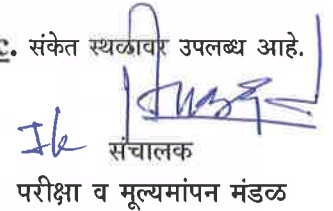 c. संकेत स्थळावर उपलब्ध आहे.
संचालक
परीक्षा व मूल्यमांपन मंडळ